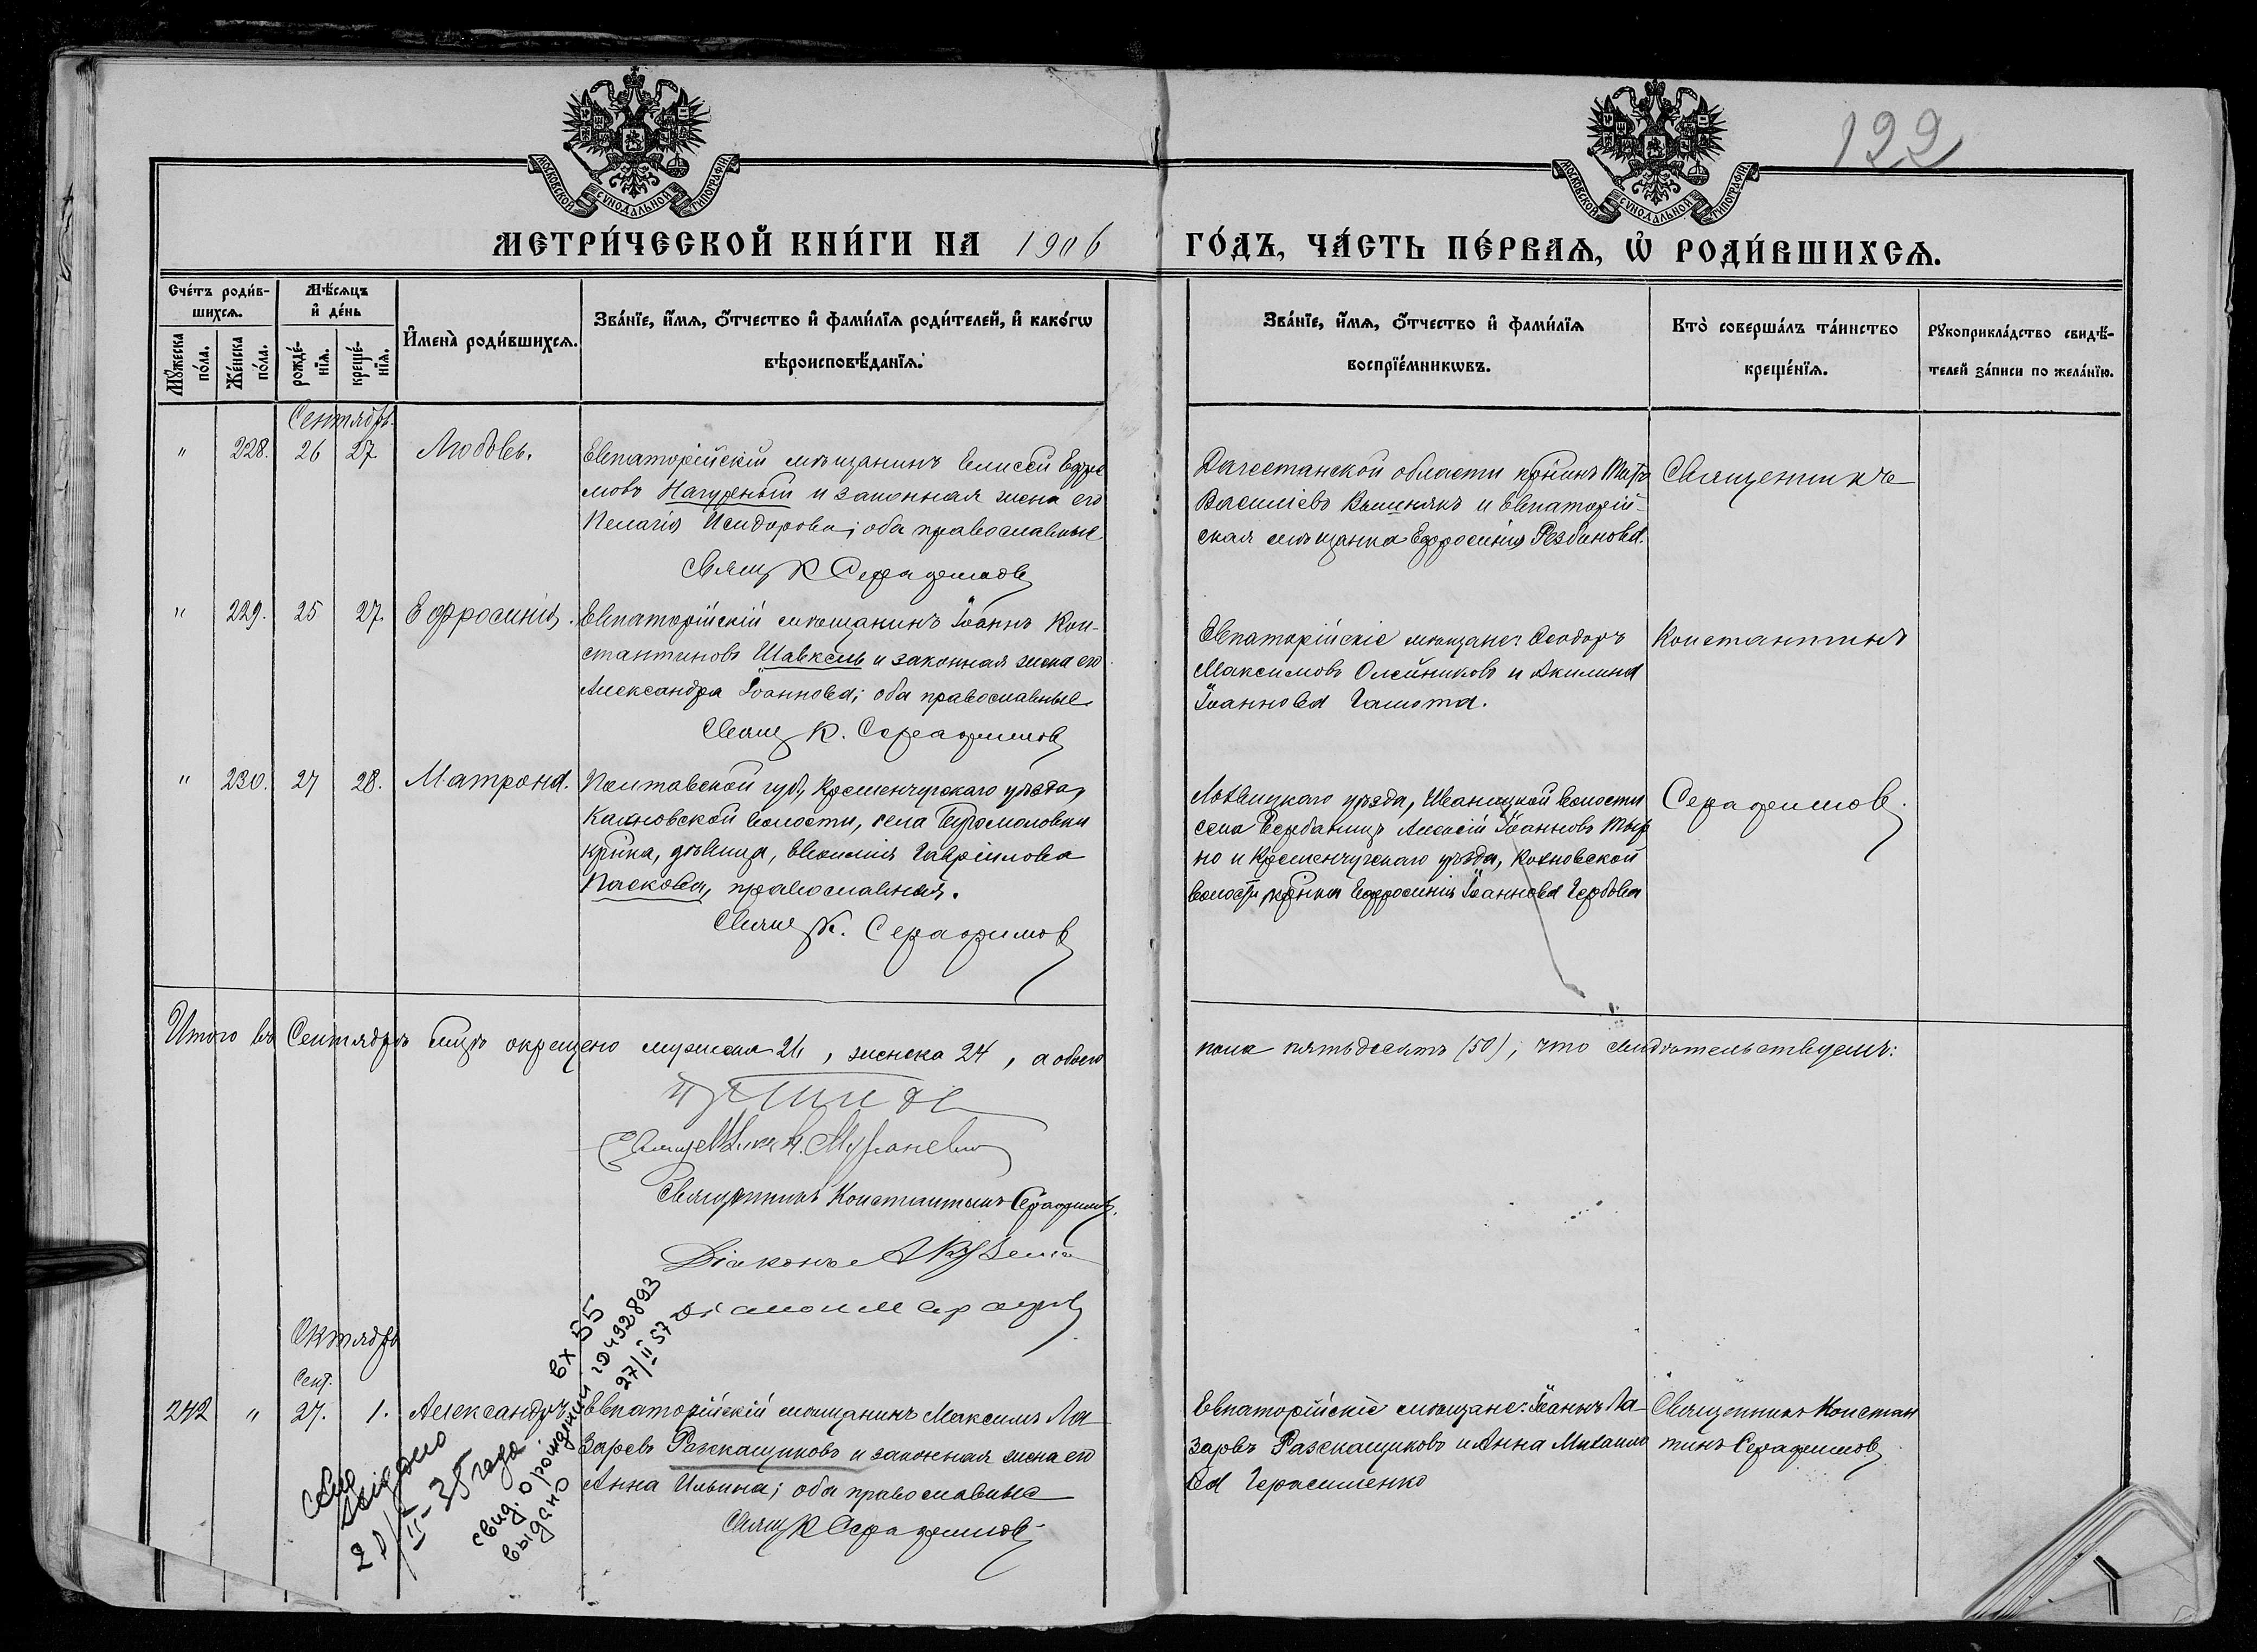 122
МОСКОВСКОЙ СУНОДАЛЬНОЙ ТИПОГРАФІИ
МОСКОВСКОЙ СУНОДАЛЬНОЙ ТИПОГРАФІИ
МЕТРИ́ЧЕСКОЙ КНИ́ГИ НА 1906
ГО́ДЪ, ЧА́СТЬ ПЕ́РВАѦ, Ѡ РОДИ́ВШИХСѦ.
Сче́тъ роди́в-
шихсѧ.
Мꙋ́жеска
по́ла.
Же́нска
по́ла.
Мѣ́сѧцъ
и҆ де́нь
рожде́-
нїѧ.
креще́-
нїѧ.
И҆мена̀ роди́вшихсѧ.
Зва́нїе, и҆́мѧ, ѻ҆́тчество и҆ фами́лїѧ роди́телей, и҆ како́гѡ
вѣроисповѣ́данїѧ.
Зва́нїе, и҆́мѧ, ѻ҆́тчество и҆ фами́лїѧ
воспрїе́мникѡвъ.
Кто̀ соверша́лъ та́инство
креще́нїѧ.
Рꙋкоприкла́дство свидѣ́-
телей за́писи по жела́нїю.
Сентябрь.
" 228. 26 27. Любовь.
Евпаторійскій мѣщанинъ Елисей Ефре
мовъ Нагурный и законная жена его
Пелагія Исидорова; оба православные.
Свящ К Серафимовъ
Дагестанской области крнинъ
Василіевъ и Евпаторій-
ская мѣщанка Ефросинія Рѣзбинова.
Священникъ
" 229. 25 27. Ефросинія.
Евпаторійскій мѣщанинъ Іоаннъ Кон-
стантиновъ Шавкель и законная жена его
Александра Іоаннова; оба православные.
Свящ К. Серафимовъ
Евпаторійскіе мѣщане: Ѳеодоръ
Максимовъ Олейниковъ и Акилина
Іоаннова
Константинъ
" 230. 27 28. Матрона.
Полтавской губ., Кременчугскаго уѣзда,
волости, села
крнка, дѣвица, Евѳимія Гавріилова
Паскова, православная.
Свящ К. Серафимовъ
Лохвицкаго уѣзда, Иваницкой волости
села Алексій Іоанновъ
но и Кременчугскаго уѣзда, Кохновской
волости крнка Ефросинія Іоаннова
Серафимовъ
Итого въ Сентябрѣ мцѣ окрещено мужеска 26, женска 24, а обоего
пола пятьдесятъ (50), что свидѣтельствуемъ:
Священникъ
Священникъ Константинъ Серафимовъ.
Діаконъ А
Діаконъ
Октябрь
Сент.
242 " 27. 1. Александръ
Евпаторійскій мѣщанинъ Максимъ Ла
заревъ Разскащиковъ и законная жена его
Анна Ильина; оба православные
Свящ К Серафимовъ
Евпаторійскіе мѣщане: Іоаннъ Ла-
заревъ Разскащиковъ и Анна Михаило
ва Герасименко
Священникъ Констан
тинъ Серафимовъ
35 года
вх 55
свид. о рождении
492893
выдано
27/II 57